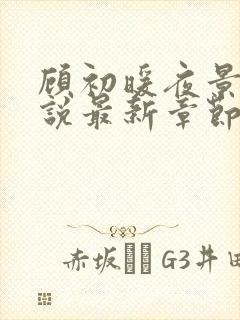 顾初暖夜景
说最新章节
赤坂 G3井田